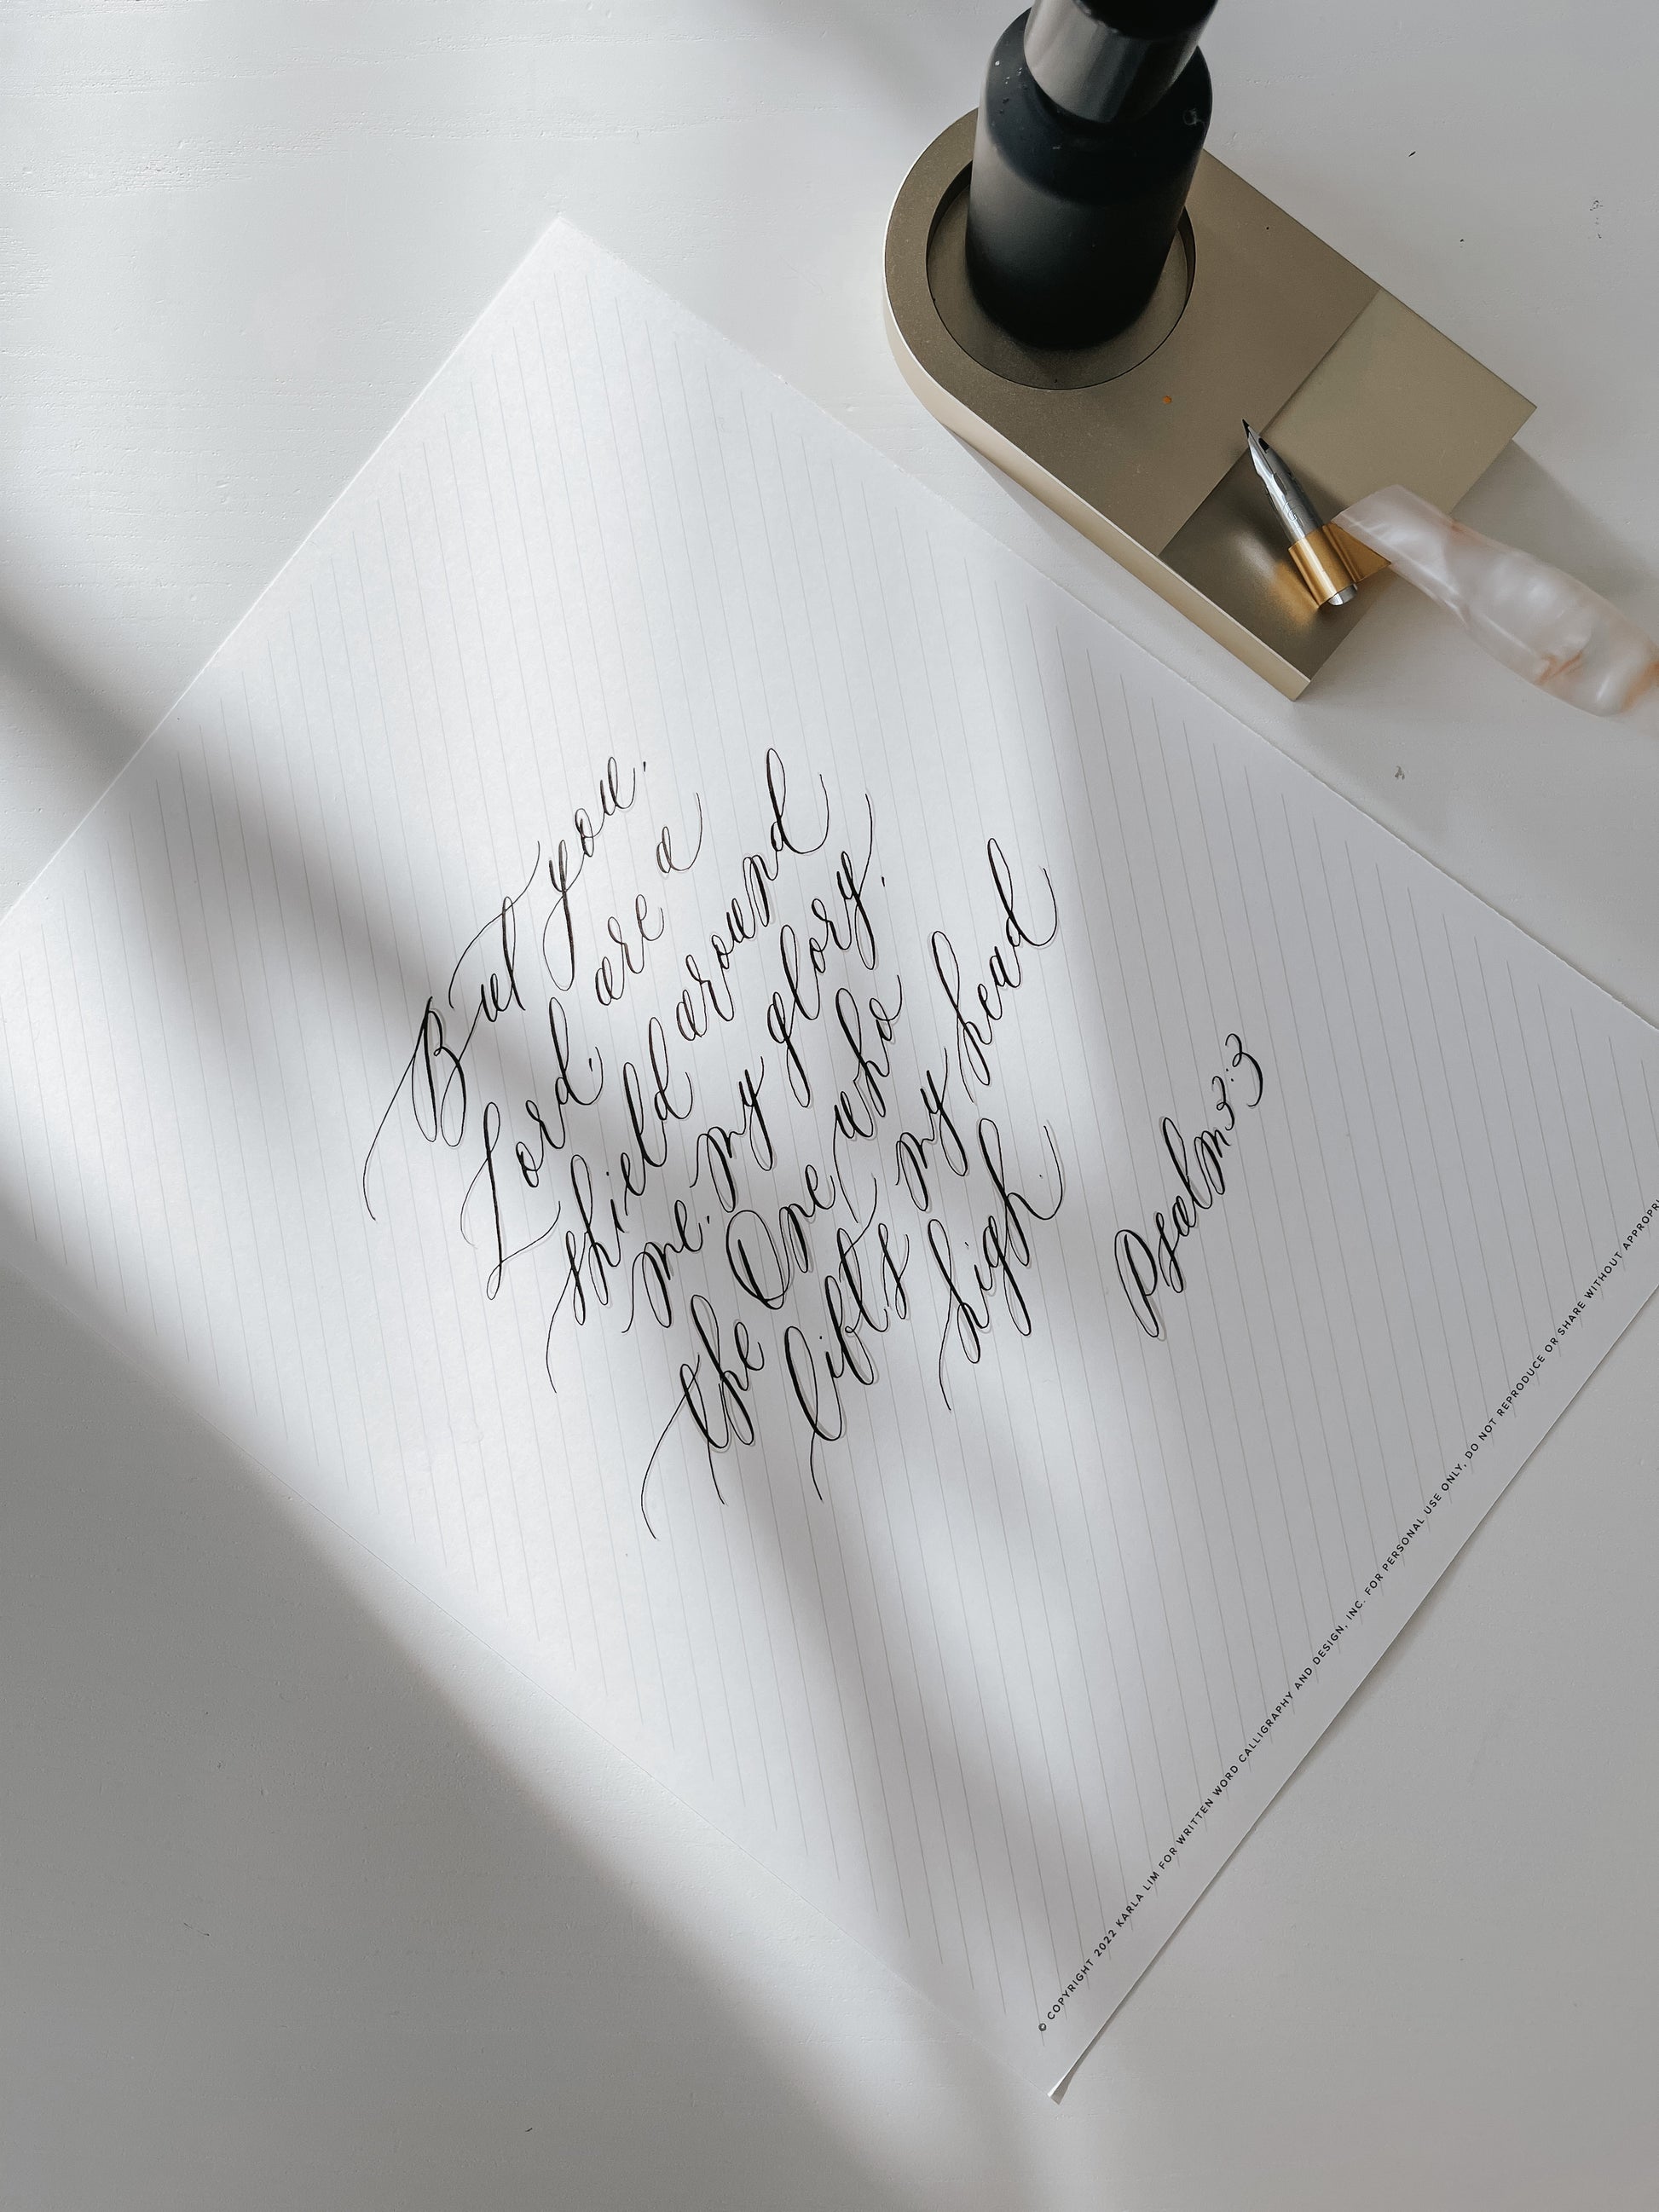 But you,
Lord, are a
shield around
me, my glory,
the One who
lifts my head
high.
Psalm 3:3
© COPYRIGHT 2022 KARLA LIM FOR WRITTEN WORD CALLIGRAPHY AND DESIGN, INC. FOR PERSONAL USE ONLY, DO NOT REPRODUCE OR SHARE WITHOUT